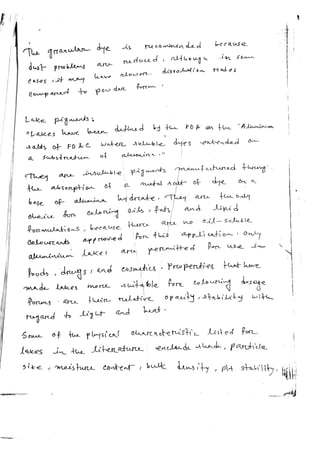 The granular dye is recommended because
dust problems are reduced, although in some
cases it may have slower dissolution rates
compared to powder form.
Lake pigments:
"Lakes have been defined by the FDA as the "Aluminium
salts of FD & C water soluble dyes extended on
a substratum of alumina."
They are insoluble pigments manufactured through
the absorption of a metal salt of dye on a
base of alumina hydrate. They are the only
choice for coloring oils, fats and lipid
formulations, because there are no oil-soluble
colourants approved for this application. Only
aluminium lakes are permitted for use in
foods, drugs, and cosmetics. Properties that have
made lakes more suitable for colouring dosage
forms are their relative opacity, stability with
regard to light and heat.
Some of the physical characteristic listed for
lakes in the literature include shade, particle
size, moisture content, bulk density, pH stability,